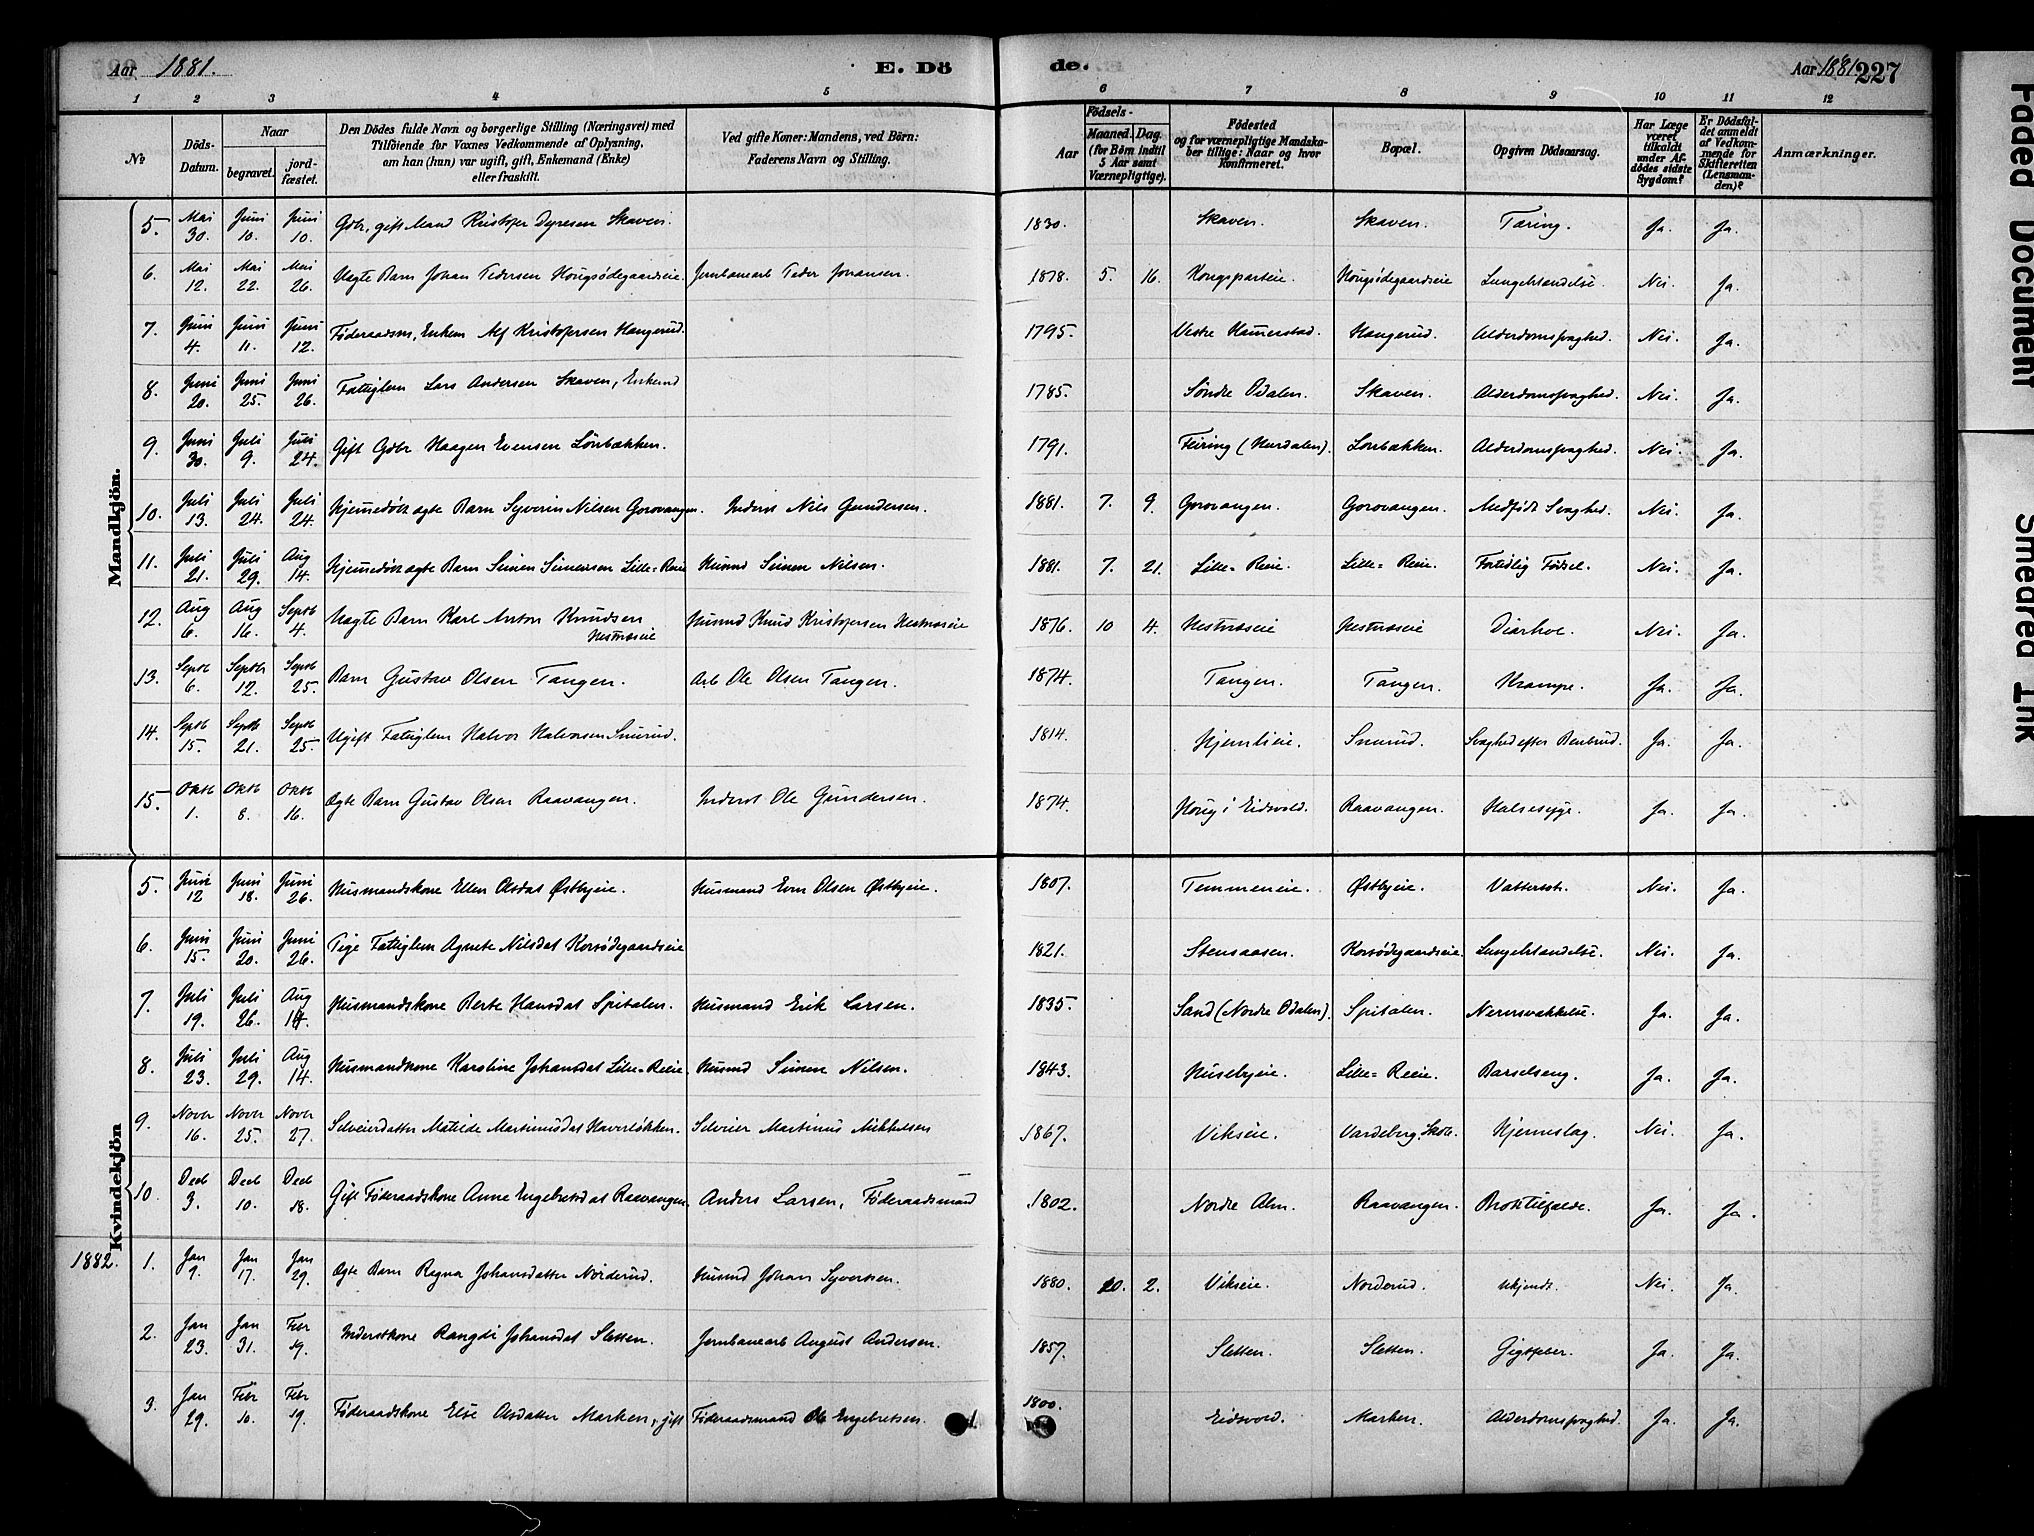 Aar 1881. E. Dö de. Aar 1881 227
1 2 3 4 5 6 7 8 9 10 11 12
No
Döds-Datum.
Naar
begravet.
jord-fæstet.
Den Dödes fulde Navn og borgerlige Stilling (Næringsvei) med
Tilföiende for Voxnes Vedkommende af Oplysning,
om han (hun) var ugift, gift, Enkemand (Enke)
eller fraskilt.
Ved gifte Koner: Mandens, ved Börn:
Faderens Navn og Stilling.
Födsels-
Aar
Maaned. Dag.
(for Börn indtil
5 Aar samt
Værnepligtige).
Födested
og for værnepligtige Mandska-
ber tillige: Naar og hvor
konfirmeret.
Bopæl.
Opgiven Dödsaarsag.
Har Læge
været
tilkaldt
under Af-
dödes sidste
Sygdom?
Er Dödsfal-
det anmeldt
af Vedkom-
mende for
Skifteretten
(Lensman-
den)?
Anmærkninger.
Mandkjön.
5. Mai 30. Juni 10. Juni 10. Gbr, gift Mand Kristofer Dyresen Skaven. 1830. Skaven. Skaven. Tæring. Ja. Ja.
6. Mai 12. Mai 22. Mai 26. Uægte Barn Johan Pedersen Hougsödegaardseie Jernbanearb Peder Johansen. 1878. 5. 16. Hougsparteie. Hougsödegaardseie Lungebetændelse. Nei. Ja.
7. Juni 4. Juni 11. Juni 12. Föderaadsm, Enkem Alf Kristofersen Haugerud. 1795. Vestre Hamerstad. Haugerud. Alderdomssvaghed. Nei. Ja.
8. Juni 20. Juni 25. Juni 26. Fattiglem Lars Andersen Skaven, Enkemd 1785. Söndre Odalen. Skaven. Alderdomssvaghed. Nei. Ja.
9. Juni 30. Juli 9. Juli 24. Gift Gdbr Haagen Evensen Lönbækken. 1791. Feiring (Hurdalen). Lönbækken. Alderdomssvaghed. Nei. Ja.
10. Juli 13. Juli 24. Juli 24. Hjemmedöbt ægte Barn Syverin Nilsen Gorovangen. Inderst Nils Gundersen. 1881. 7. 9. Gorovangen. Gorovangen. Medfödt Svaghed. Nei. Ja.
11. Juli 21. Juli 29. Aug 14. Hjemmedöbt ægte Barn Simen Simensen Lille-Reeie Husmd Simen Nilsen. 1881. 7. 21. Lille-Reeie. Lille-Reeie. Fortidlig Födsel. Nei. Ja.
12. Aug 6. Aug 16. Septb 4. Uægte Barn Karl Anton Knudsen Husmd Knud Kristofersen Hestnæseie 1876. 10 4. Hestnæseie Hestnæseie Diarhoe. Nei. Ja.
Hestnæseie
13. Septb 6. Septbr 12. Septb 25. Barn Gustav Olsen Tangen. Arb Ole Olsen Tangen. 1874. Tangen. Tangen. Krampe. Ja. Ja.
14. Septb 15. Septb 21. Septb 25. Ugift Fattiglem Halvor Halvorsen Smerud. 1814. Hjemlieie. Smerud. Svaghed efter Benbrud. Ja. Ja.
15. Oktb 1. Oktb 8. Oktb 16. Ægte Barn Gustav Olsen Raavangen. Inderst Ole Gundersen. 1874. Houg i Eidsvold. Raavangen. Halsesyge. Ja. Ja.
Kvindekjön
5. Juni 12 Juni 18. Juni 26. Husmandskone Ellen Olsdat Østbyeie. Husmand Even Olsen Østbyeie. 1807. Temmeneie. Østbyeie. Vattersot. Nei. Ja.
6. Juni 15. Juni 20. Juni 26. Pige Fattiglem Agnete Nilsdat Korsödegaardseie 1821. Stensaasen. Korsödegaardseie. Lungebetændelse. Nei. Ja.
7. Juli 19. Juli 26. Aug 14. Husmandskone Berte Hansdat Spitalen. Husmand Erik Larsen. 1835. Sand (Nordre Odalen). Spitalen. Nervesvækkelse. Ja. Ja.
8. Juli 23. Juli 29. Aug 14. Husmandkone Karoline Johansdat Lille-Reeie. Husmd Simen Nilsen. 1843. Husebyeie. Lille-Reeie. Barselseng. Ja. Ja.
9. Novbr 16. Novbr 25. Novbr 27. Selveierdatter Matilde Martinusdat Haverløkken. Selveier Martinus Mikkelsen 1867. Vikseie. Vardeberg Skole. Hjerneslag. Nei. Ja.
10. Decb 3. Decb 10. Decb 18. Gift Föderaadskone Anne Engebretsdat Raavangen. Anders Larsen, Föderaadsmand 1802. Nordre Alm. Raavangen. Broktilfælde. Ja. Ja.
1882. 1. Jan 9. Jan 17. Jan 29. Ægte Barn Ragna Johansdatter Norderud. Husmd Johan Syversen. 1880. 10. 2. Vikseie. Norderud. ukjendt. Nei. Ja.
2. Jan 23. Jan 31. Febr 19. Inderstkone Rangdi Johansdat Sletten. Jernbanearb August Andersen. 1857. Sletten. Sletten. Gigtfeber. Ja. Ja.
3. Jan 29. Febr 10. Febr 19. Föderaadskone Else Olsdatter Marken, gift Föderaadsmand Ole Engebretsen. 1800. Eidsvold. Marken. Alderdomssvaghed. Ja. Ja.
Faded Document
Smeared Ink